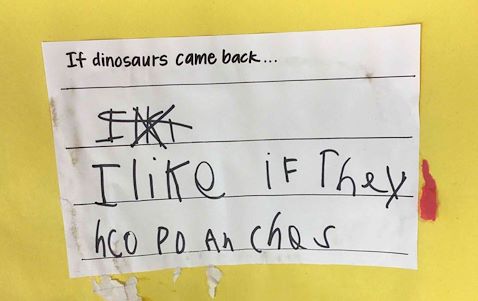 If dinosaurs came back...
I like if They
hco po An chas